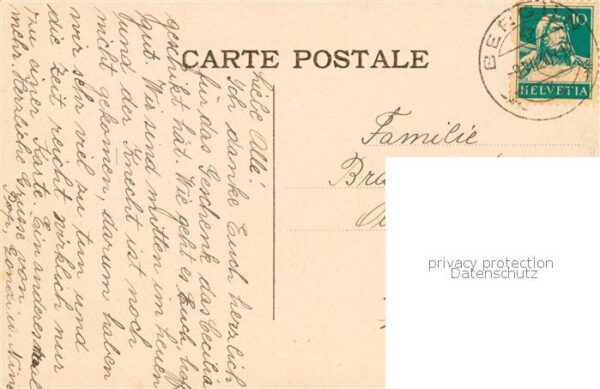 CARTE POSTALE
10
HELVETIA
Familie
Bra
privacy protection
Datenschutz
Liebe Alle!
Ich danke Euch herzlich
für das Geschenk das Cecilia
geschickt hat. Wie geht es Euch, hoff
gut. Wir sind mitten im heuen
und der Knecht ist noch
nicht gekommen, darum haben
wir sehr viel zu tun und
die Zeit reicht wirklich nur
zu einer Karte. Ein anderes Mal
mehr. Herzliche Grüsse von
u. Nina